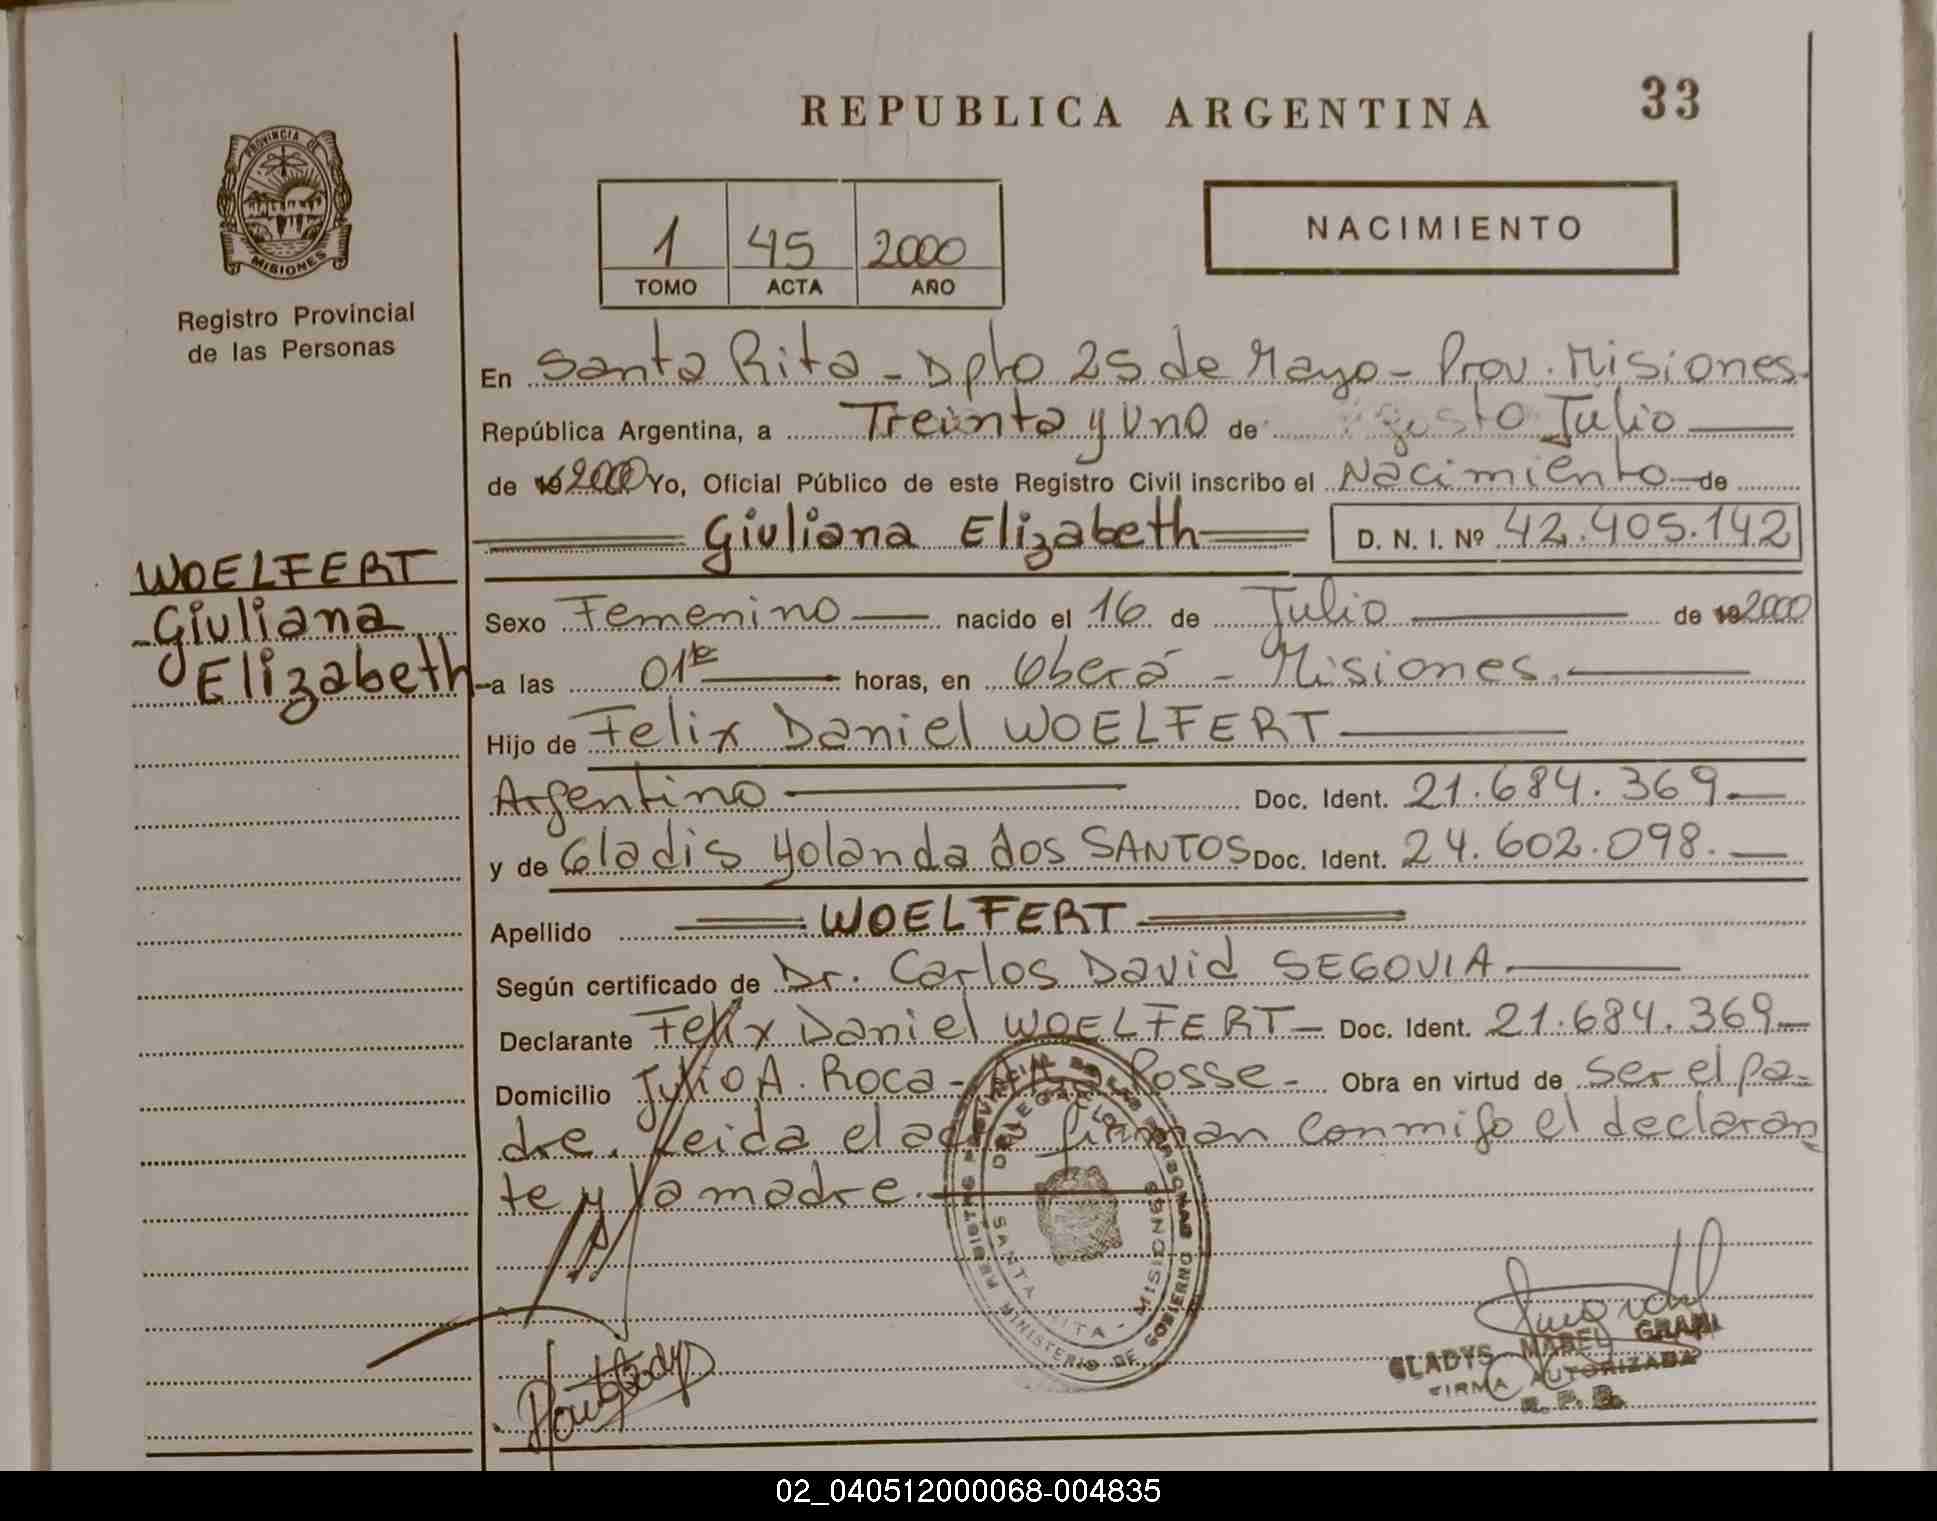 REPUBLICA ARGENTINA
33
PROVINCIA DE
MISIONES
Registro Provincial
de las Personas
1 45 2000
TOMO ACTA AÑO
NACIMIENTO
En Santa Rita - Dpto 25 de Mayo - Prov. Misiones.
República Argentina, a Treinta y Uno de Agosto Julio
de 19 2000 Yo, Oficial Público de este Registro Civil inscribo el Nacimiento de
Giuliana Elizabeth D. N. I. Nº 42.405.142
WOELFERT
Giuliana
Elizabeth
Sexo Femenino nacido el 16 de Julio de 19 2000
a las 01 horas, en Oberá - Misiones.
Hijo de Felix Daniel WOELFERT
Argentino Doc. Ident. 21.684.369
y de Gladis Yolanda dos SANTOS Doc. Ident. 24.602.098.
Apellido WOELFERT
Según certificado de Dr. Carlos David SEGOVIA.
Declarante Felix Daniel WOELFERT Doc. Ident. 21.684.369
Domicilio Julio A. Roca - Posse - Obra en virtud de ser el pa-
dre. Leida el acta firman conmigo el declaran
te y la madre.
REGISTRO PROVINCIAL DE LAS PERSONAS
MINISTERIO DE GOBIERNO
SANTA RITA - MISIONES
GLADYS MABEL
FIRMA AUTORIZADA
R. P. P.
02_040512000068-004835